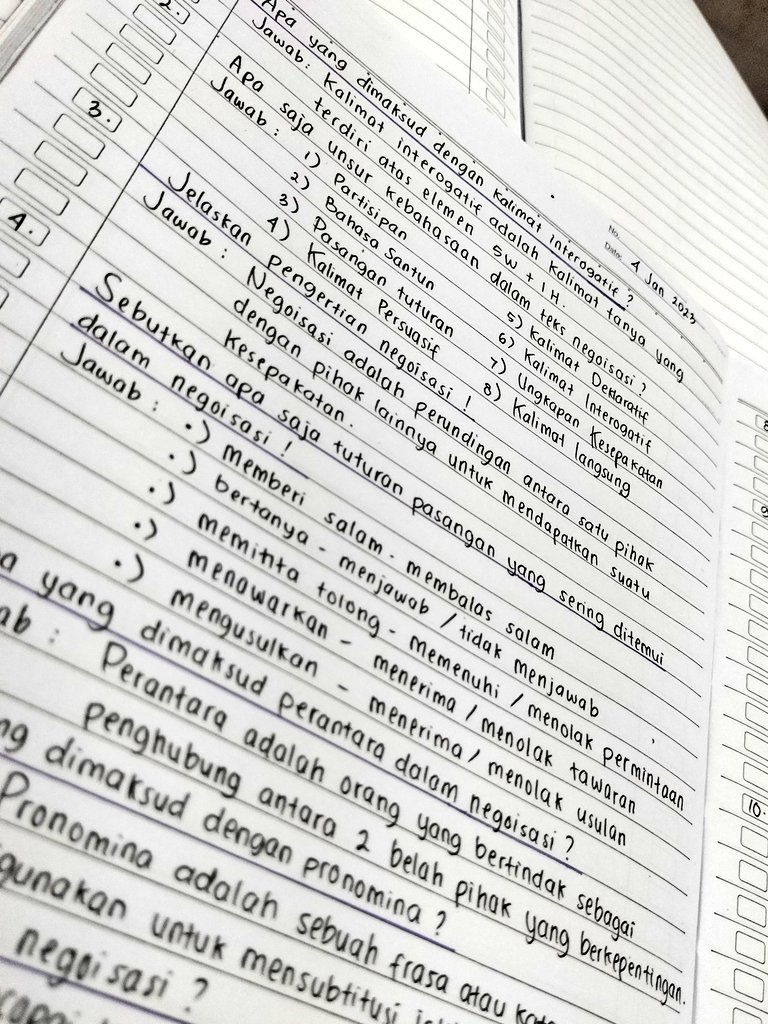 No.
Date: 4 Jan 2023
Apa yang dimaksud dengan kalimat interogatif ?
Jawab : Kalimat interogatif adalah kalimat tanya yang
terdiri atas elemen 5W + 1H.
2.
Apa saja unsur kebahasaan dalam teks negoisasi ?
Jawab : 1) Partisipan
2) Bahasa Santun
3) Pasangan tuturan
4) Kalimat Persuasif
5) Kalimat Deklaratif
6) Kalimat Interogatif
7) Ungkapan Kesepakatan
8) Kalimat langsung
3.
Jelaskan pengertian negoisasi !
Jawab : Negoisasi adalah perundingan antara satu pihak
dengan pihak lainnya untuk mendapatkan suatu
Kesepakatan.
4.
Sebutkan apa saja tuturan pasangan yang sering ditemui
dalam negoisasi !
Jawab : •) memberi salam - membalas salam
•) bertanya - menjawab / tidak menjawab
•) meminta tolong - memenuhi / menolak permintaan
•) menawarkan - menerima / menolak tawaran
•) mengusulkan - menerima / menolak usulan
yang dimaksud perantara dalam negoisasi ?
: Perantara adalah orang yang bertindak sebagai
penghubung antara 2 belah pihak yang berkepentingan.
dimaksud dengan pronomina ?
Pronomina adalah sebuah frasa atau
untuk mensubtitusi
negoisasi ?
10.